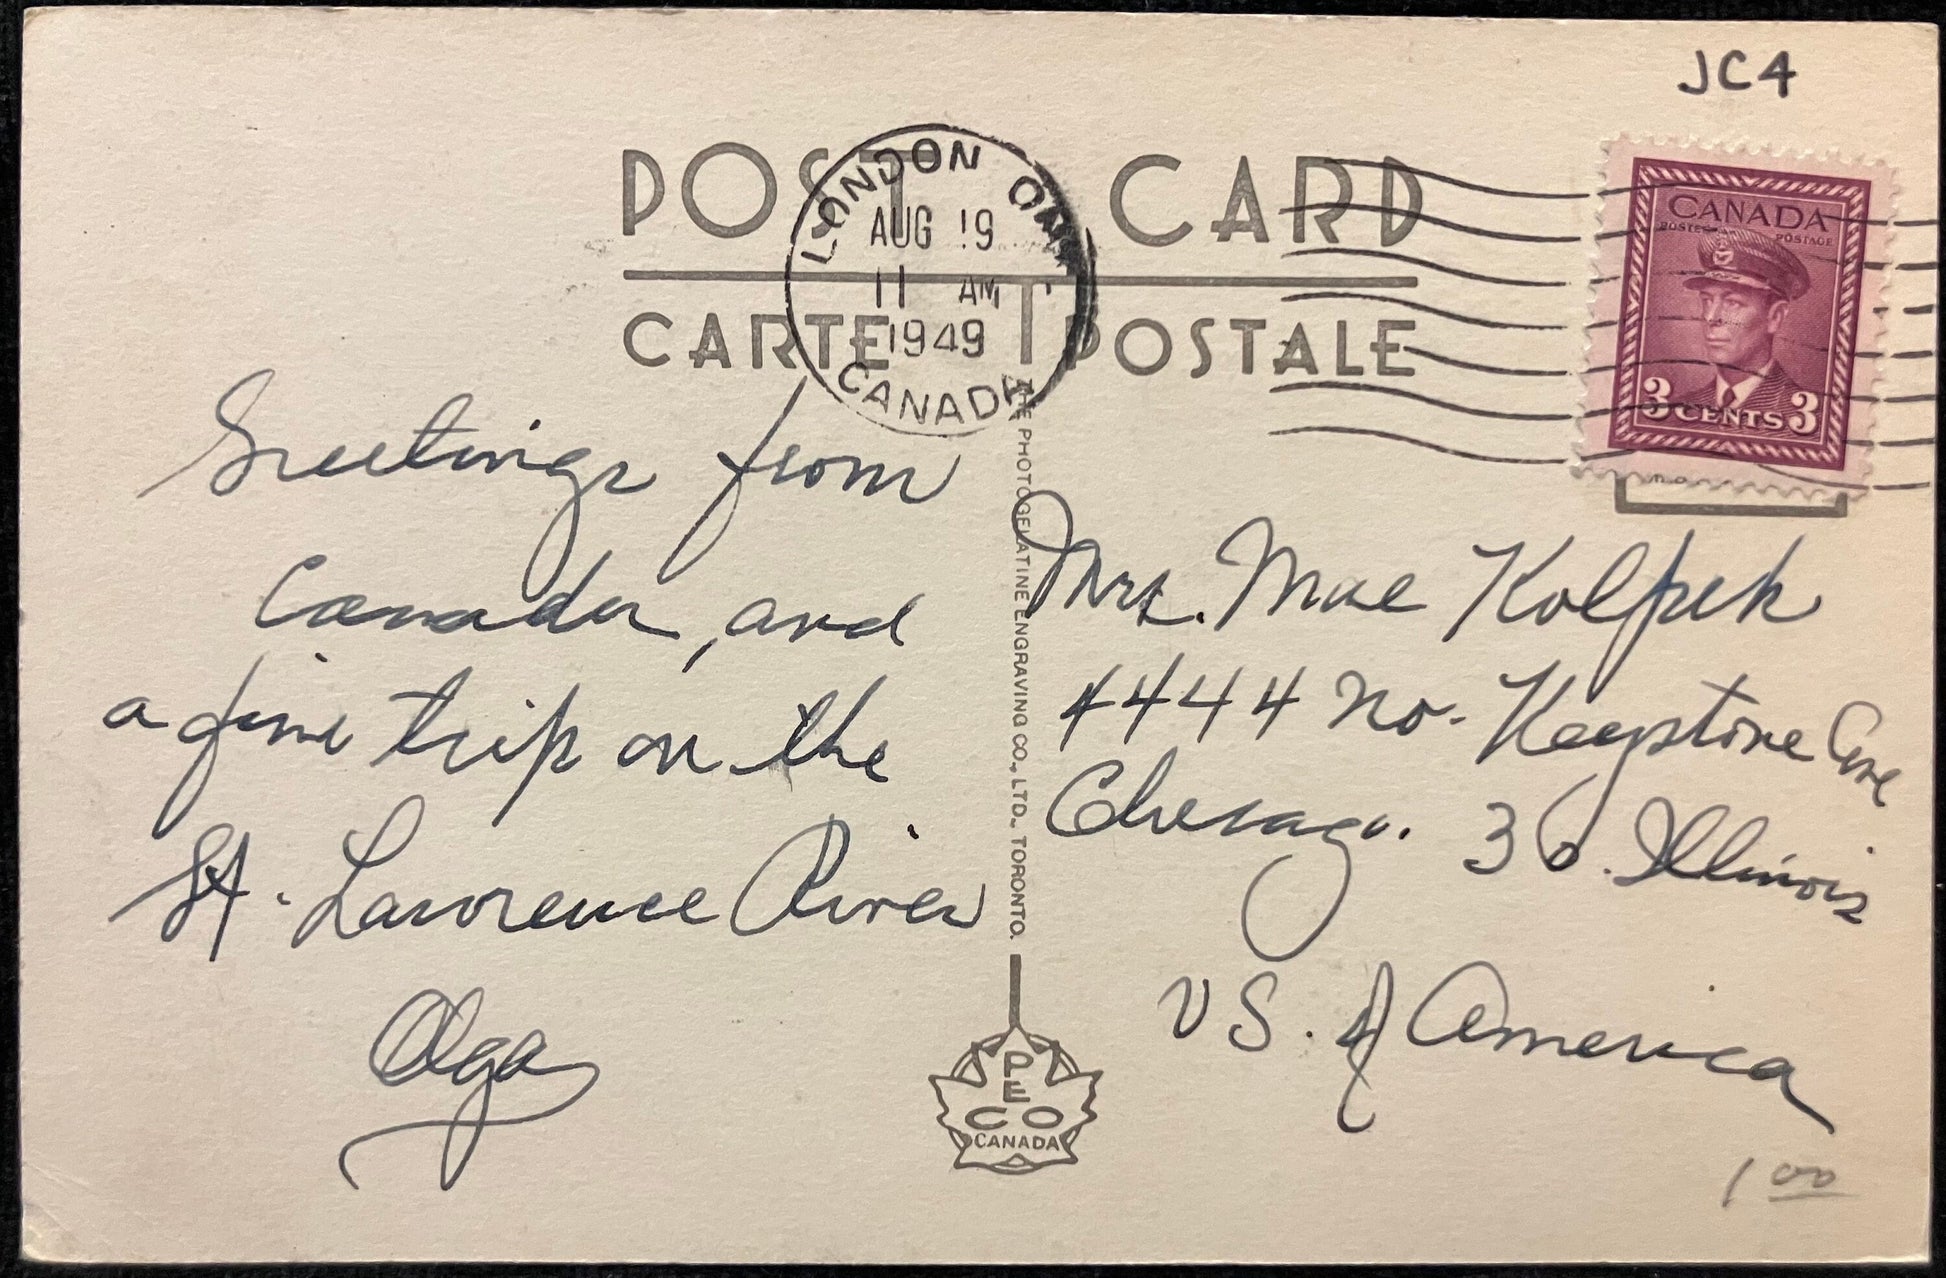 JC4
POST CARD
CARTE POSTALE
LONDON ONT.
AUG 19
11 AM
1949
CANADA
CANADA
POSTES POSTAGE
3 CENTS 3
Greetings from
Canada, and
a fine trip on the
St. Lawrence River
Olga
THE PHOTOGELATINE ENGRAVING CO., LTD., TORONTO.
PECO
CANADA
Mrs. Mae
4444 No. Keystone Ave
Chicago. 30. Illinois
US. of America
1 00